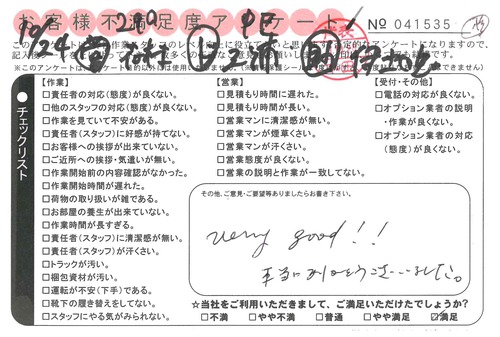 お客様不満足度アンケート
№ 041535
チェックリスト
【作業】
□責任者の対応(態度)が良くない。
□他のスタッフの対応(態度)が良くない。
□作業を見ていて不安がある。
□責任者(スタッフ)に好感が持てない。
□お客様への挨拶が出来ていない。
□ご近所への挨拶・気遣いが無い。
□作業開始前の内容確認がなかった。
□作業開始時間が遅れた。
□荷物の取り扱いが雑である。
□お部屋の養生が出来ていない。
□作業時間が長すぎる。
□責任者(スタッフ)に清潔感が無い。
□責任者(スタッフ)が汗くさい。
□トラックが汚い。
□梱包資材が汚い。
□運転が不安(下手)である。
□靴下の履き替えをしてない。
□スタッフにやる気がみられない。
【営業】
□見積もり時間に遅れた。
□見積もり時間が長い。
□営業マンに清潔感が無い。
□営業マンが煙草くさい。
□営業マンが汗くさい。
□営業態度が良くない。
□営業の説明と作業が一致してない。
【受付・その他】
□電話の対応が良くない。
□オプション業者の説明
・作業が良くない。
□オプション業者の対応
(態度)が良くない。
その他、ご意見・ご要望等ありましたらお書き下さい。
very good!!
本当にありがとうございました。
☆当社をご利用いただきまして、ご満足いただけたでしょうか?
□不満 □やや不満 □普通 □やや満足 ☑満足